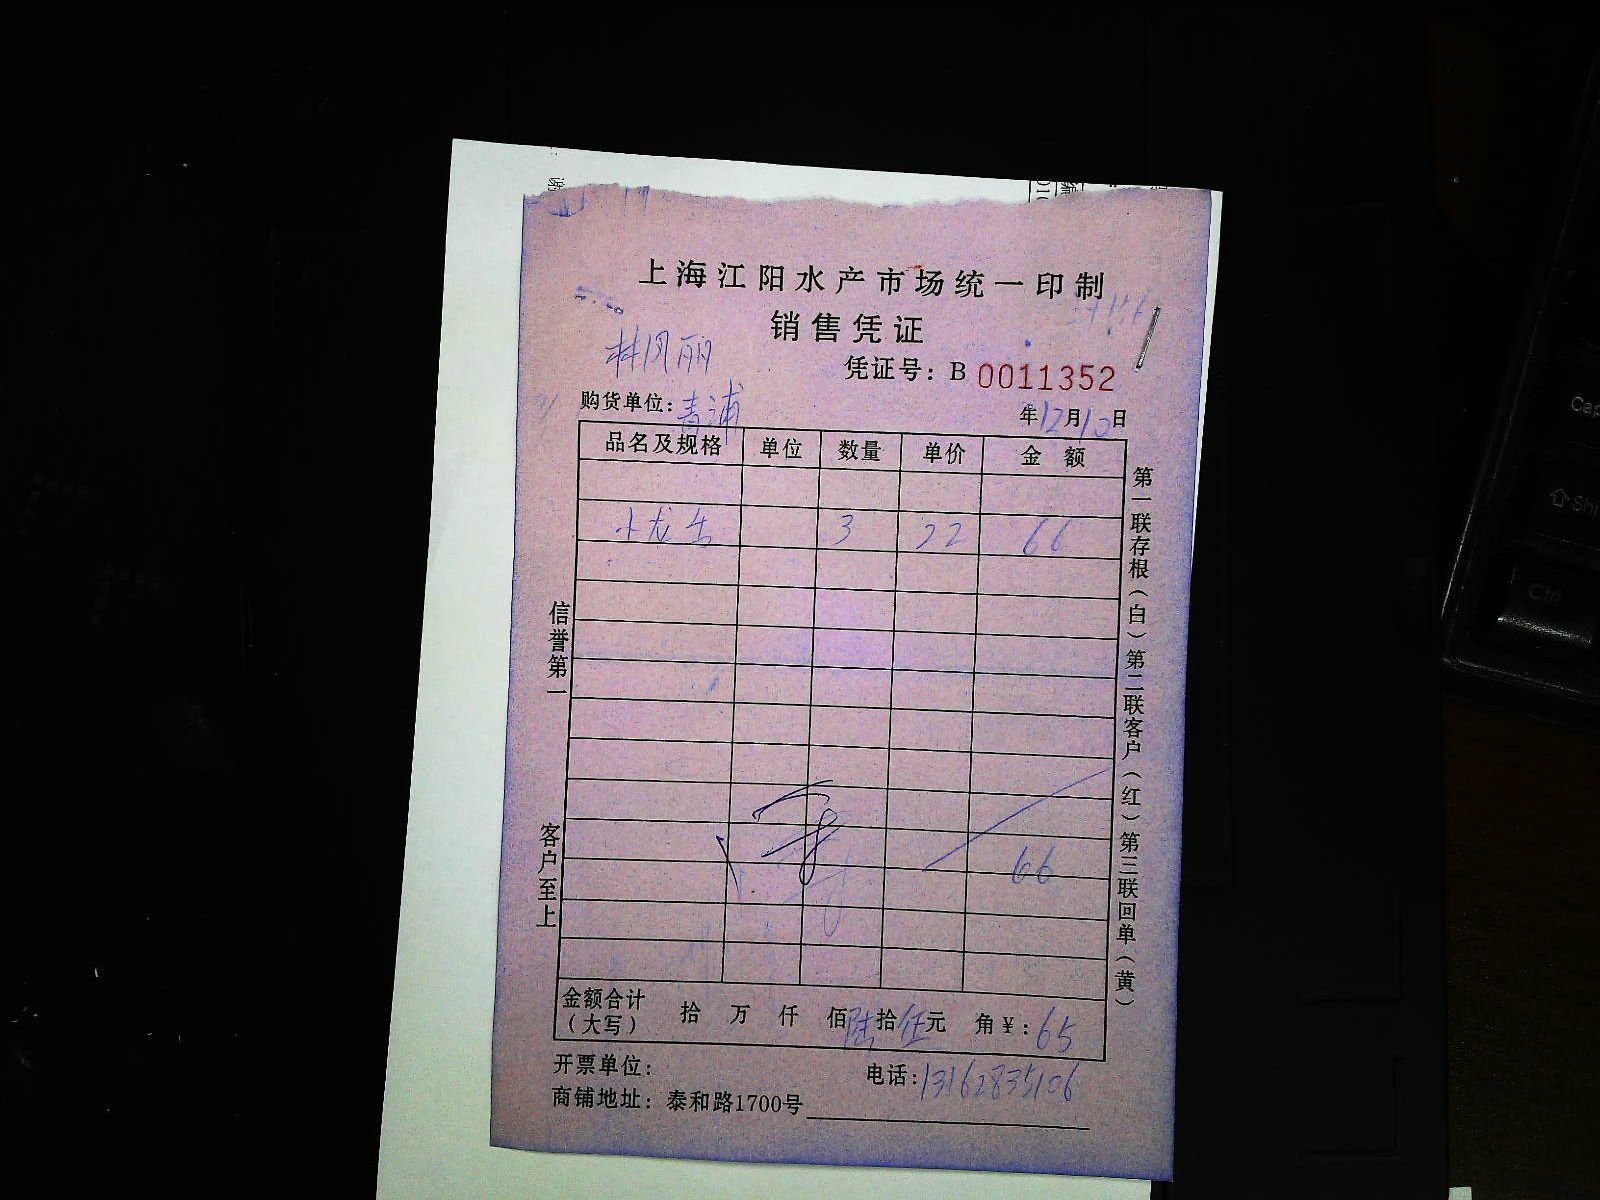 谢
上海江阳水产市场统一印制
销售凭证
林凤丽
凭证号：B 0011352
购货单位：青浦
年12月10日
品名及规格 单位 数量 单价 金额
小龙 3 22 66
66
金额合计（大写） 拾 万 仟 佰陆拾伍元 角￥：65
开票单位：
电话：13162835106
商铺地址：泰和路1700号
信誉第一
客户至上
第一联存根（白）第二联客户（红）第三联回单（黄）
Cap
Shi
Ctrl